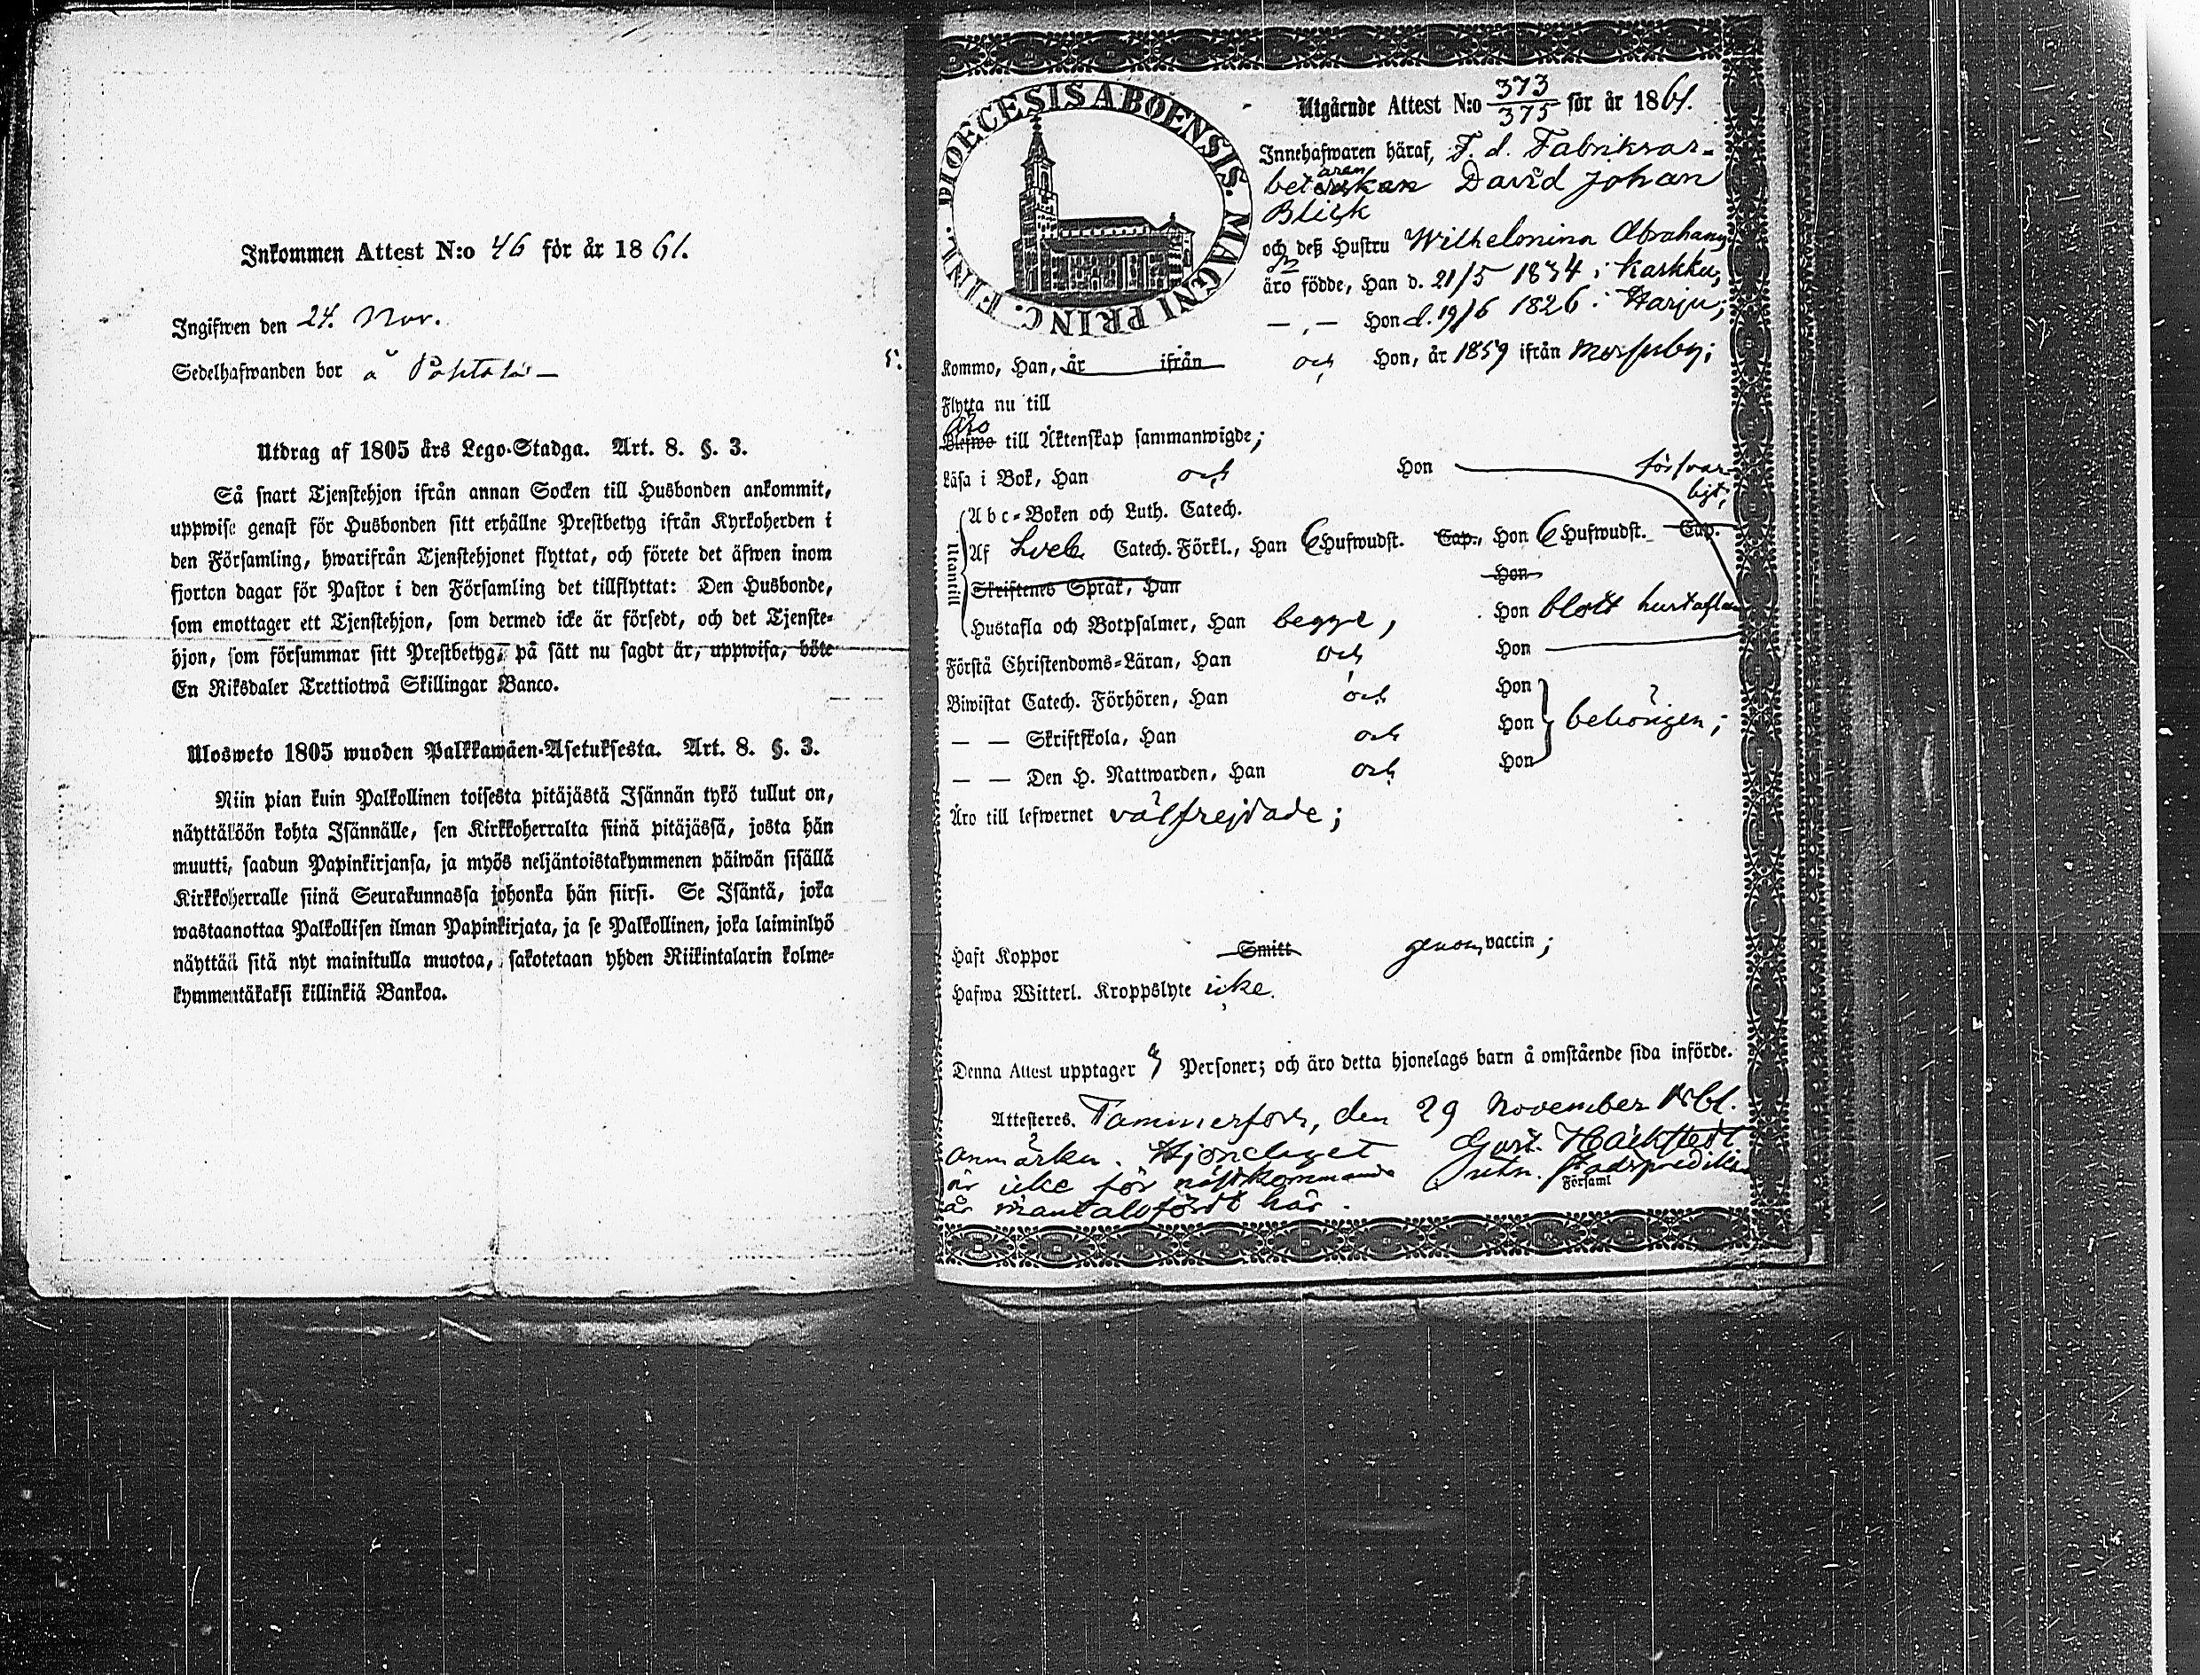 Inkommen Attest N:o 46 för år 1861.
Ingifwen den 24. Nov.
Sedelhafwanden bor å
Utdrag af 1805 års Lego-Stadga. Art. 8. §. 3.
Så snart Tjenstehjon ifrån annan Socken till Husbonden ankommit,
uppwise genast för Husbonden sitt erhållne Prestbetyg ifrån Kyrkoherden i
den Församling, hwarifrån Tjenstehjonet flyttat, och förete det äfwen inom
fjorton dagar för Pastor i den Församling det tillflyttat: Den Husbonde,
som emottager ett Tjenstehjon, som dermed icke är försedt, och det Tjenste-
hjon, som försummar sitt Prestbetyg, på sätt nu sagdt är, uppwisa, böte
En Riksdaler Trettiotwå Skillingar Banco.
Ulosweto 1805 wuoden Palkkawäen-Asetuksesta. Art. 8. §. 3.
Niin pian kuin Palkollinen toisesta pitäjästä Isännän tykö tullut on,
näyttäköön kohta Isännälle, sen Kirkkoherralta siinä pitäjässä, josta hän
muutti, saadun Papinkirjansa, ja myös neljäntoistakymmenen päiwän sisällä
Kirkkoherralle siinä Seurakunnassa johonka hän siirsi. Se Isäntä, joka
wastaanottaa Palkollisen ilman Papinkirjata, ja se Palkollinen, joka laiminlyö
näyttää sitä nyt mainitulla muotoa, sakotetaan yhden Riikintalarin kolme-
kymmentäkaksi killinkiä Bankoa.
DIOECESIS ABOENSIS. MAGNI PRINC. FINL.
Utgående Attest N:o 373/375 för år 1861.
Innehafwaren häraf, F. d. Fabriksar-
betaren David Johan
Blick
och deß Hustru Wilhelmina Abrahams
dr
äro födde, Han d. 21/5 1834 i Karkku,
— „ — Hon d. 19/6 1826 i Harju;
Kommo, Han, år ifrån och Hon, år 1859 ifrån Messuby;
Flytta nu till
Äro
Blefwo till Äktenskap sammanwigde;
Läsa i Bok, Han och Hon försvar-
ligt;
Utantill
Abc-Boken och Luth. Catech.
Af Sveb. Catech. Förkl., Han 6 Hufwudst. Cap., Hon 6 Hufwudst. Cap.
Skriftenes Språk, Han Hon
Hustafla och Botpsalmer, Han begge, Hon blott hustaflan
Förstå Christendoms-Läran, Han och Hon
Biwistat Catech. Förhören, Han och Hon
— — Skriftskola, Han och Hon behörigen;
— — Den H. Nattwarden, Han och Hon
Äro till lefwernet välfrejdade;
Haft Koppor Smitt genom vaccin;
Hafwa Witterl. Kroppslyte icke.
Denna Attest upptager Personer; och äro detta hjonelags barn å omstående sida införde.
Attesteres. Tammerfors, den 29 November 1861.
Anmärkn. Hjonelaget Gust. Häckstedt
är icke för nästkommande utn. stadspredikan
Församl
år mantalsfördt här.